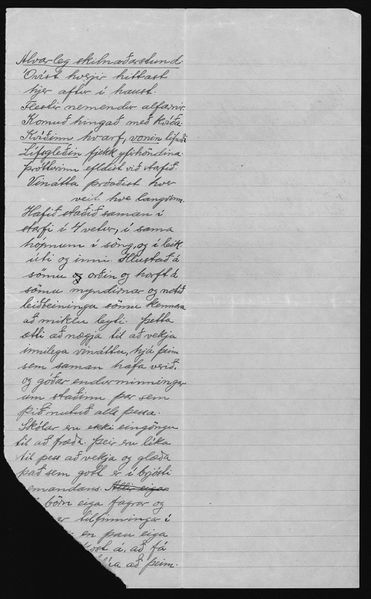 Alvarleg skilnaðarstund.
Óvíst hverjir hittast
hjer aftur í haust.
Flestir nemendur alfarnir.
Komuð hingað með kvíða
Kvíðinn hvarf, vonin lifnði
Lífsgleðin fjekk yfirhöndina
þrótturinn efldist við starfið.
Vinátta þróaðist hver
veit hve langvinn.
Hafið starfið saman í
starfi í 4 vetur, í sama
hópnum í söng, og í leik
úti og inni Hlustað á
sömu orðin og horft á
sömu myndirnar og notið
leiðbeininga sömu kennara
að miklu leyti. Þetta
ætti að nægja til að vekja
innilega vináttu, hjá þeim
sem saman hafa verið.
og góðar endurminningar
um staðinn þar sem
þið nutuð alls þessa.
Skólar eru ekki eingöngu
til að fræða. Þeir eru líka
til þess að vekja og glæða
það sem gott er í brjósti
nemandans. Allir eiga
börn eiga fagrar og
tilfinningar í
en þau eiga
kost á, að fá
að þeim.